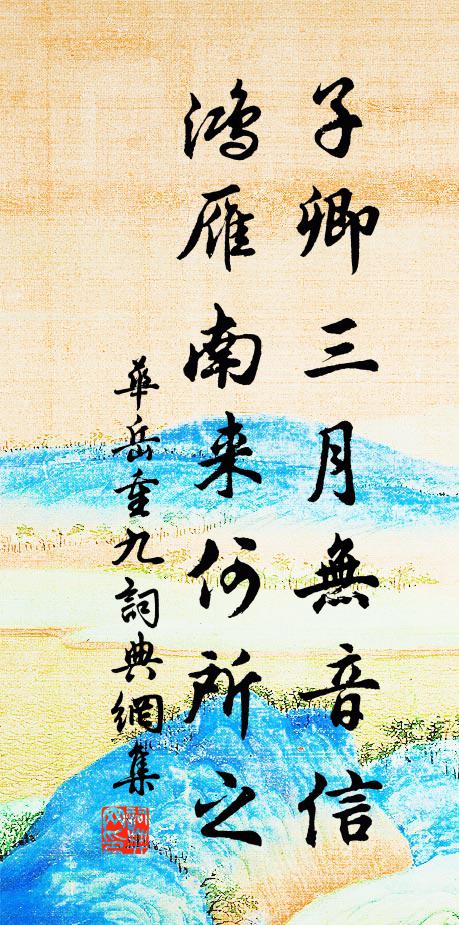 子卿三月無音信
鴻雁南来何所之
華岳重九詞典網集